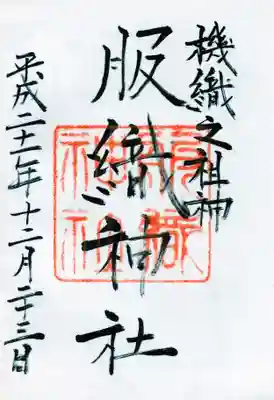 機織之祖神
服織神社
平成二十一年十二月二十三日